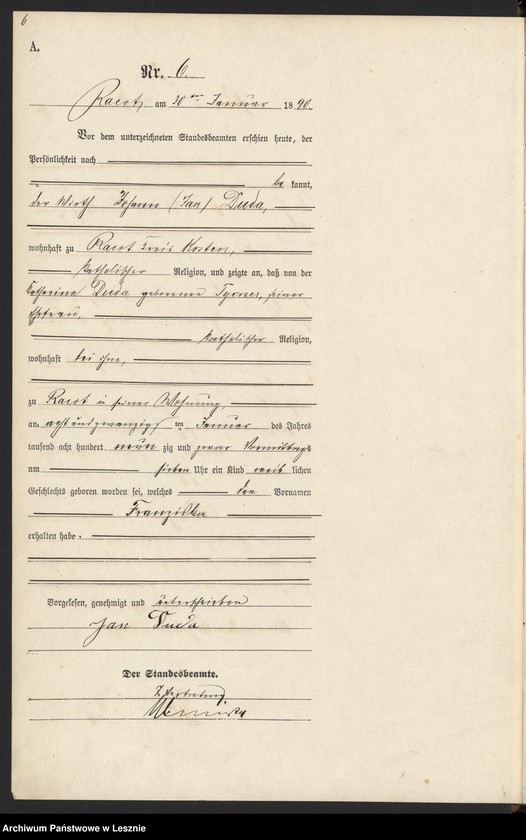 6
A.
Nr. 6.
Racot, am 30ten Januar 1890.
Vor dem unterzeichneten Standesbeamten erschien heute, der
Persönlichkeit nach
be kannt,
der Wirth Johann (Jan) Duda,
wohnhaft zu Racot Kreis Kosten,
katholischer Religion, und zeigte an, daß von der
Katharina Duda geborenen, seiner
Ehefrau,
katholischer Religion,
wohnhaft bei ihm,
zu Racot in seiner Wohnung,
am acht und zwanzigsten Januar des Jahres
tausend acht hundert neun zig und zwar Vormittags
um sieben Uhr ein Kind weib lichen
Geschlechts geboren worden sei, welches den Vornamen
Franziska
erhalten habe.
Vorgelesen, genehmigt und unterschrieben
Jan Duda
Der Standesbeamte.
Archiwum Państwowe w Lesznie